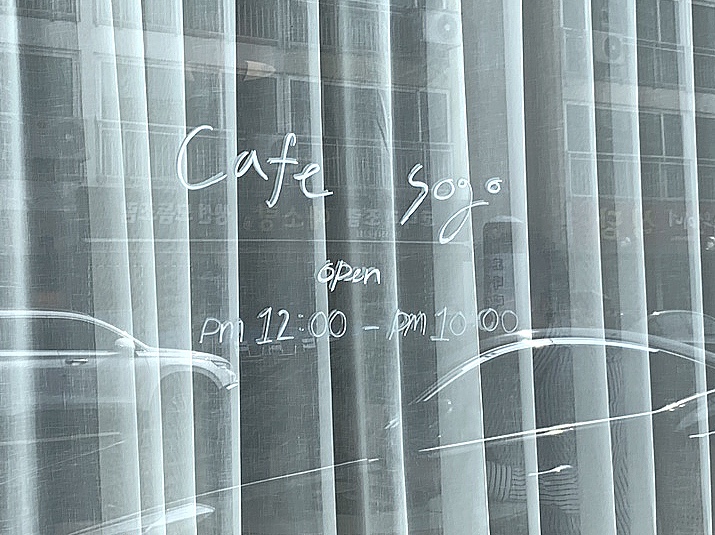 Cafe sogo
open
pm 12:00 - pm 10:00